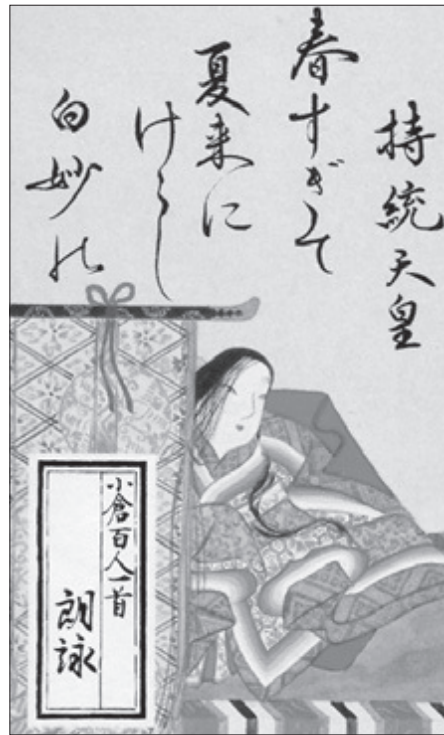 持統天皇
春すぎて
夏来に
けらし
白妙の
小倉百人一首
朗詠